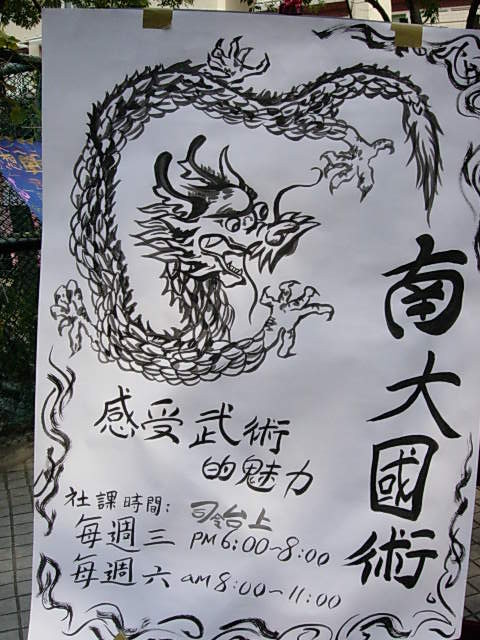 南大國術
感受武術
的魅力
社課時間:
司令台上
每週三 PM 6:00~8:00
每週六 am 8:00~11:00